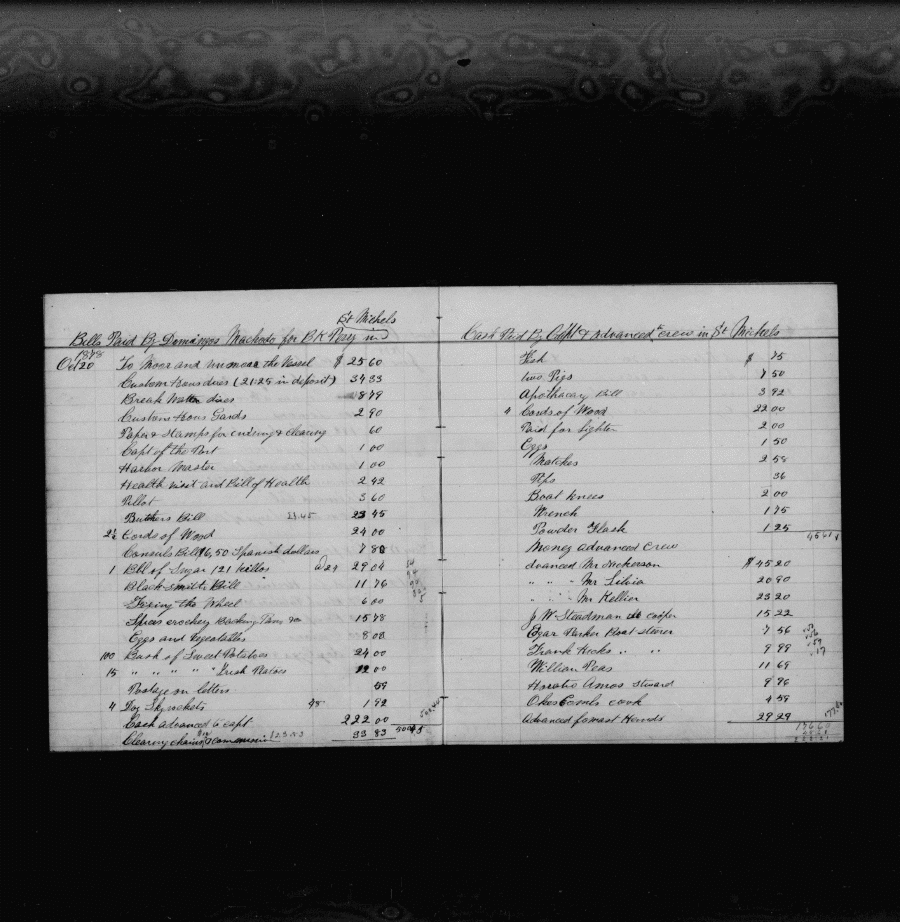 St Michels
Bills Paid By Domingos Machado for Bk Perry in
1878
Oct 20 To Moor and unmoor the Vessel $ 25 60
Custom Hous dues (21.25 in deposit) 34 33
Break Water dues 18 79
Customs Hous Gards 2 90
Paper & Stamps for entering & clearing 60
Capt of the Port 1 00
Harbor Master 1 00
Health visit and Bill of Health 2 42
Pillot 3 60
Butchers Bill 23 45
2½ Cords of Wood 24 00
Consuls Bill 6,50 Spanish dollars 7 80
1 Bbl of Sugar 121 killos 29 04
Black smiths Bill 11 76
Fixing the Wheel 6 00
Spices crockey Backing Pans &c 15 78
Eggs and vegetables 8 08
100 Bush of Sweet Potatoes 24 00
15 " " " " Irish Potatoes 12 00
Postage on letters 59
4 Doz Sky rockets 48 1 92
Cash advanced to capt 222 00
Clearing chains 33 83
Cash Paid By Capt & Advanced to crew in St Michels
Fish $ 75
two Pigs 7 50
Apothacary Bill 3 92
4 Cords of Wood 22 00
Paid for Lighter 2 00
Eggs 1 50
Matches 2 58
36
Boat knees 2 00
Wrench 1 75
Powder Flask 1 25
Money advanced Crew
dvanced Mr Nickerson $ 45 20
" " " Mr Silvia 20 90
" " " Mr Kellier 23 20
J. W. Steadman cooper 15 22
Egar Parker Boat sterer 7 56
Frank Hicks " " 9 99
William Peas 11 69
Horatio Amos steward 9 96
Okes Combs cook 4 59
Advanced formast Hands 29 29